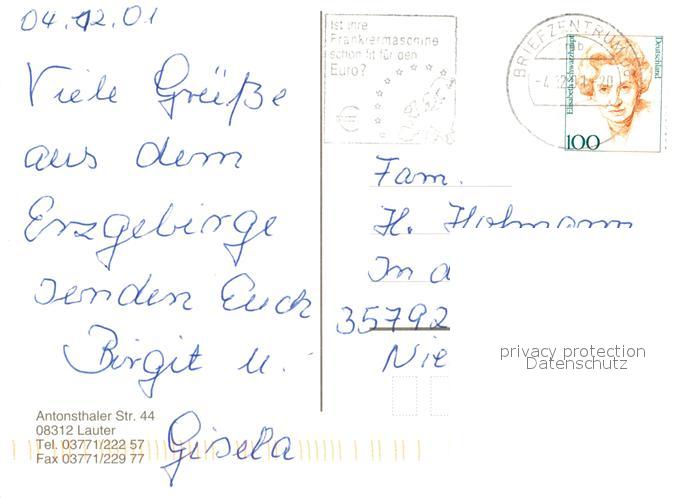 04.12.01
Viele Grüße
aus dem
Erzgebirge
senden Euch
Birgit u.
Gisela
Antonsthaler Str. 44
08312 Lauter
Tel. 03771/222 57
Fax 03771/229 77
Ist ihre
Frankiermaschine
schon fit für den
Euro?
€
BRIEFZENTRUM
Elisabeth Schwarzhaupt
Deutschland
100
Fam.
H. Hohmann
In d
35792
Nie
privacy protection
Datenschutz